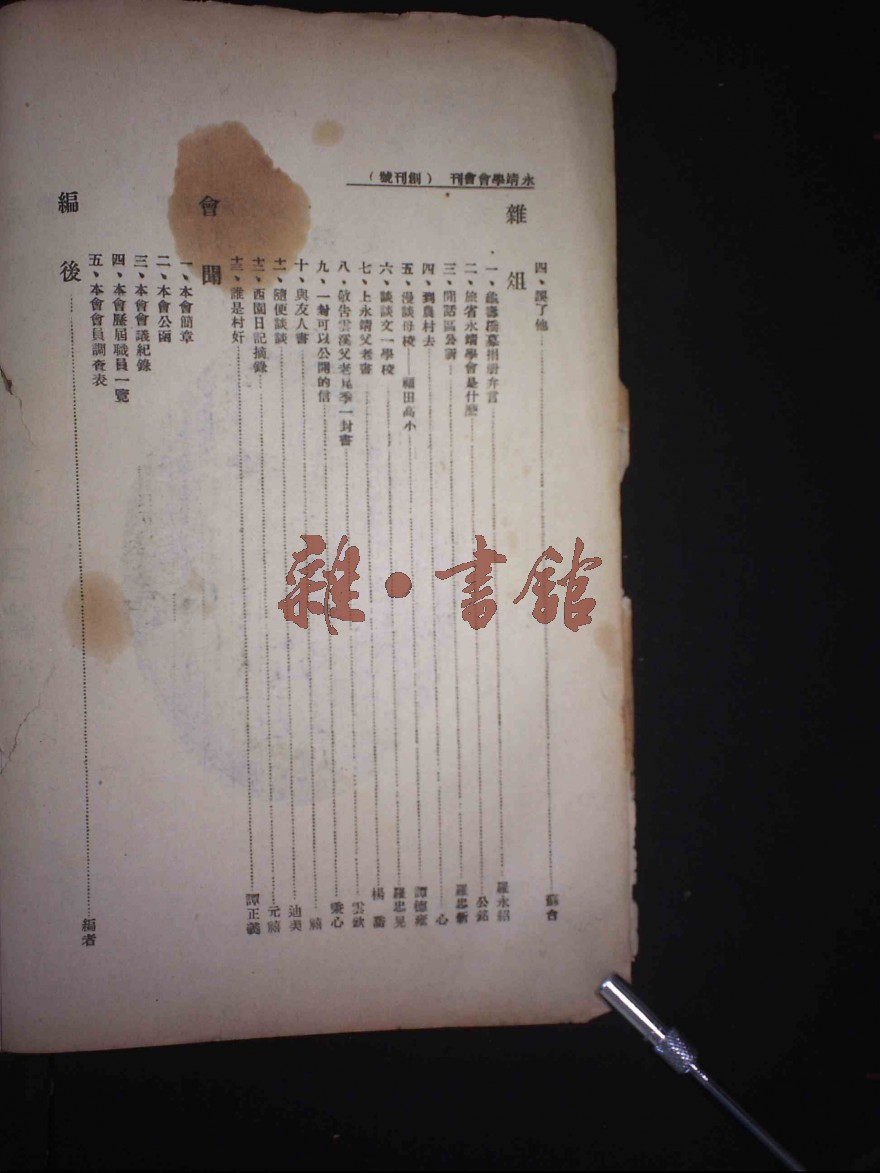 永靖學會會刊 （創刊號）
四、誤了他 蘇合
雜俎
一、 募捐册弁言 羅永紹
二、旅省永靖學會是什麼 公銘
三、閒話區公署 羅忠新
四、到農村去 心
五、漫談母校——福田高小 譚德
六、談談文一學校 羅忠晃
七、上永靖父老書 楊
八、敬告雲溪父老昆季一封書 雲欽
九、一封可以公開的信 秉心
十、與友人書
十一、隨便談談 迪美
十二、西園日記摘錄 元
十三、誰是村奸 譚正義
會聞
一、本會簡章
二、本會公函
三、本會會議紀錄
四、本會歷屆職員一覽
五、本會會員調查表
編後 編者
雜·書館